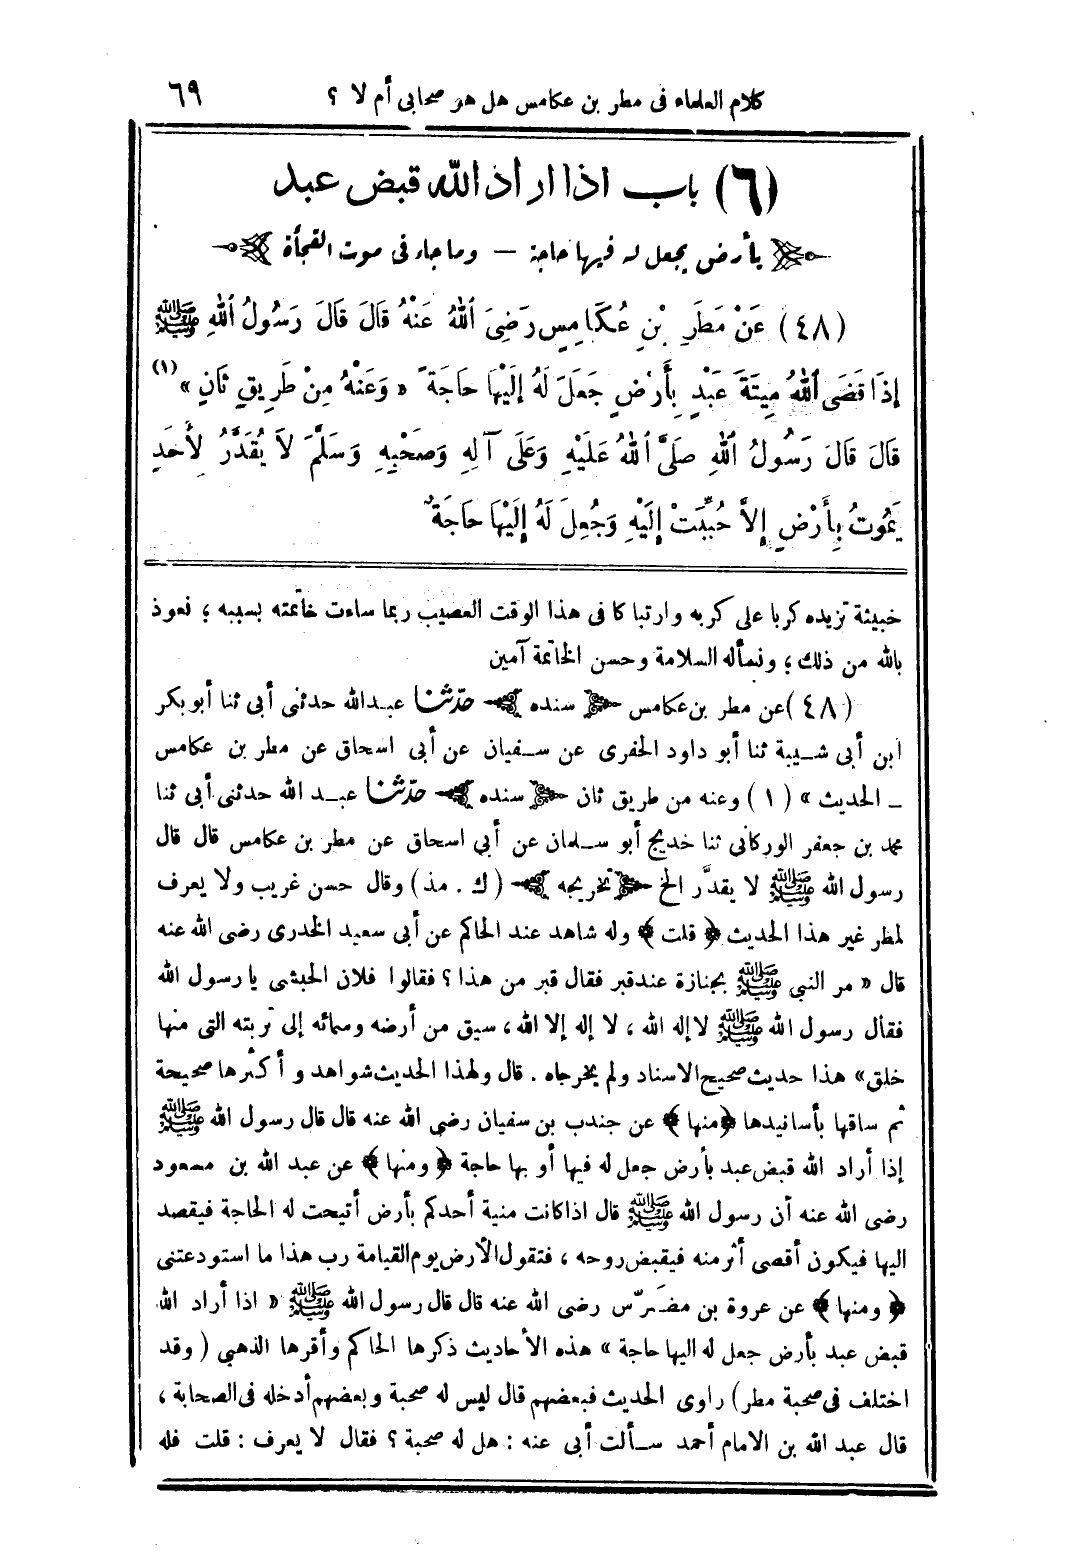 كلام العلماء فى مطر بن عكامس هل هو صحابى أم لا ؟ ٦٩
(٦) باب اذا اراد الله قبض عبد
بأرض يجعل له فيها حاجة – وما جاء فى موت الفجأة
(٤٨) عَنْ مَطَرِ بْنِ عُكَامِسٍ رَضِىَ اللهُ عَنْهُ قَالَ قَالَ رَسُولُ اللهِ ﷺ
إِذَا قَضَى اللهُ مِيتَةَ عَبْدٍ بِأَرْضٍ جَعَلَ لَهُ إِلَيْهَا حَاجَةً « وَعَنْهُ مِنْ طَرِيقٍ ثَانٍ » (١)
قَالَ قَالَ رَسُولُ اللهِ صَلَّى اللهُ عَلَيْهِ وَعَلَى آلِهِ وَصَحْبِهِ وَسَلَّمَ لاَ يُقَدَّرُ لأَحَدٍ
يَمُوتُ بِأَرْضٍ إِلاَّ حُبِّبَتْ إِلَيْهِ وَجُعِلَ لَهُ إِلَيْهَا حَاجَةٌ
خبيثة تزيده كربا على كربه وارتباكا فى هذا الوقت العصيب ربما ساءت خاتمته بسببه ؛ نعوذ
بالله من ذلك ؛ ونسأله السلامة وحسن الخاتمة آمين
(٤٨) عن مطر بن عكامس سنده حدّثنا عبد الله حدثنى أبى ثنا أبو بكر
ابن أبى شيبة ثنا أبو داود الحفرى عن سفيان عن أبى اسحاق عن مطر بن عكامس
ـ الحديث » (١) وعنه من طريق ثان سنده حدّثنا عبد الله حدثنى أبى ثنا
محمد بن جعفر الوركانى ثنا خديج أبو سلمان عن أبى اسحاق عن مطر بن عكامس قال قال
رسول الله ﷺ لا يقدَّر الخ تخريجه (ك . مذ) وقال حسن غريب ولا يعرف
لمطر غير هذا الحديث ﴿ قلت ﴾ وله شاهد عند الحاكم عن أبى سعيد الخدرى رضى الله عنه
قال « مر النبى ﷺ بجنازة عند قبر فقال قبر من هذا ؟ فقالوا فلان الحبشى يا رسول الله
فقال رسول الله ﷺ لا إله الله ، لا إله إلا الله ، سيق من أرضه وسمائه إلى تربته التى منها
خلق» هذا حديث صحيح الاسناد ولم يخرجاه . قال ولهذا الحديث شواهد و أكثرها صحيحة
ثم ساقها بأسانيدها ﴿منها﴾ عن جندب بن سفيان رضى الله عنه قال قال رسول الله ﷺ
إذا أراد الله قبض عبد بأرض جعل له فيها أو بها حاجة ﴿ ومنها ﴾ عن عبد الله بن مسعود
رضى الله عنه أن رسول الله ﷺ قال اذا كانت منية أحدكم بأرض أتيحت له الحاجة فيقصد
اليها فيكون أقصى أثر منه فيقبض روحه ، فتقول الأرض يوم القيامة رب هذا ما استودعتنى
﴿ ومنها ﴾ عن عروة بن مضَرِّس رضى الله عنه قال قال رسول الله ﷺ « اذا أراد الله
قبض عبد بأرض جعل له اليها حاجة » هذه الأحاديث ذكرها الحاكم وأقرها الذهبى (وقد
اختلف فى صحبة مطر) راوى الحديث فبعضهم قال ليس له صحبة وبعضهم أدخله فى الصحابة ،
قال عبد الله بن الامام أحمد سألت أبى عنه : هل له صحبة ؟ فقال لا يعرف : قلت فله